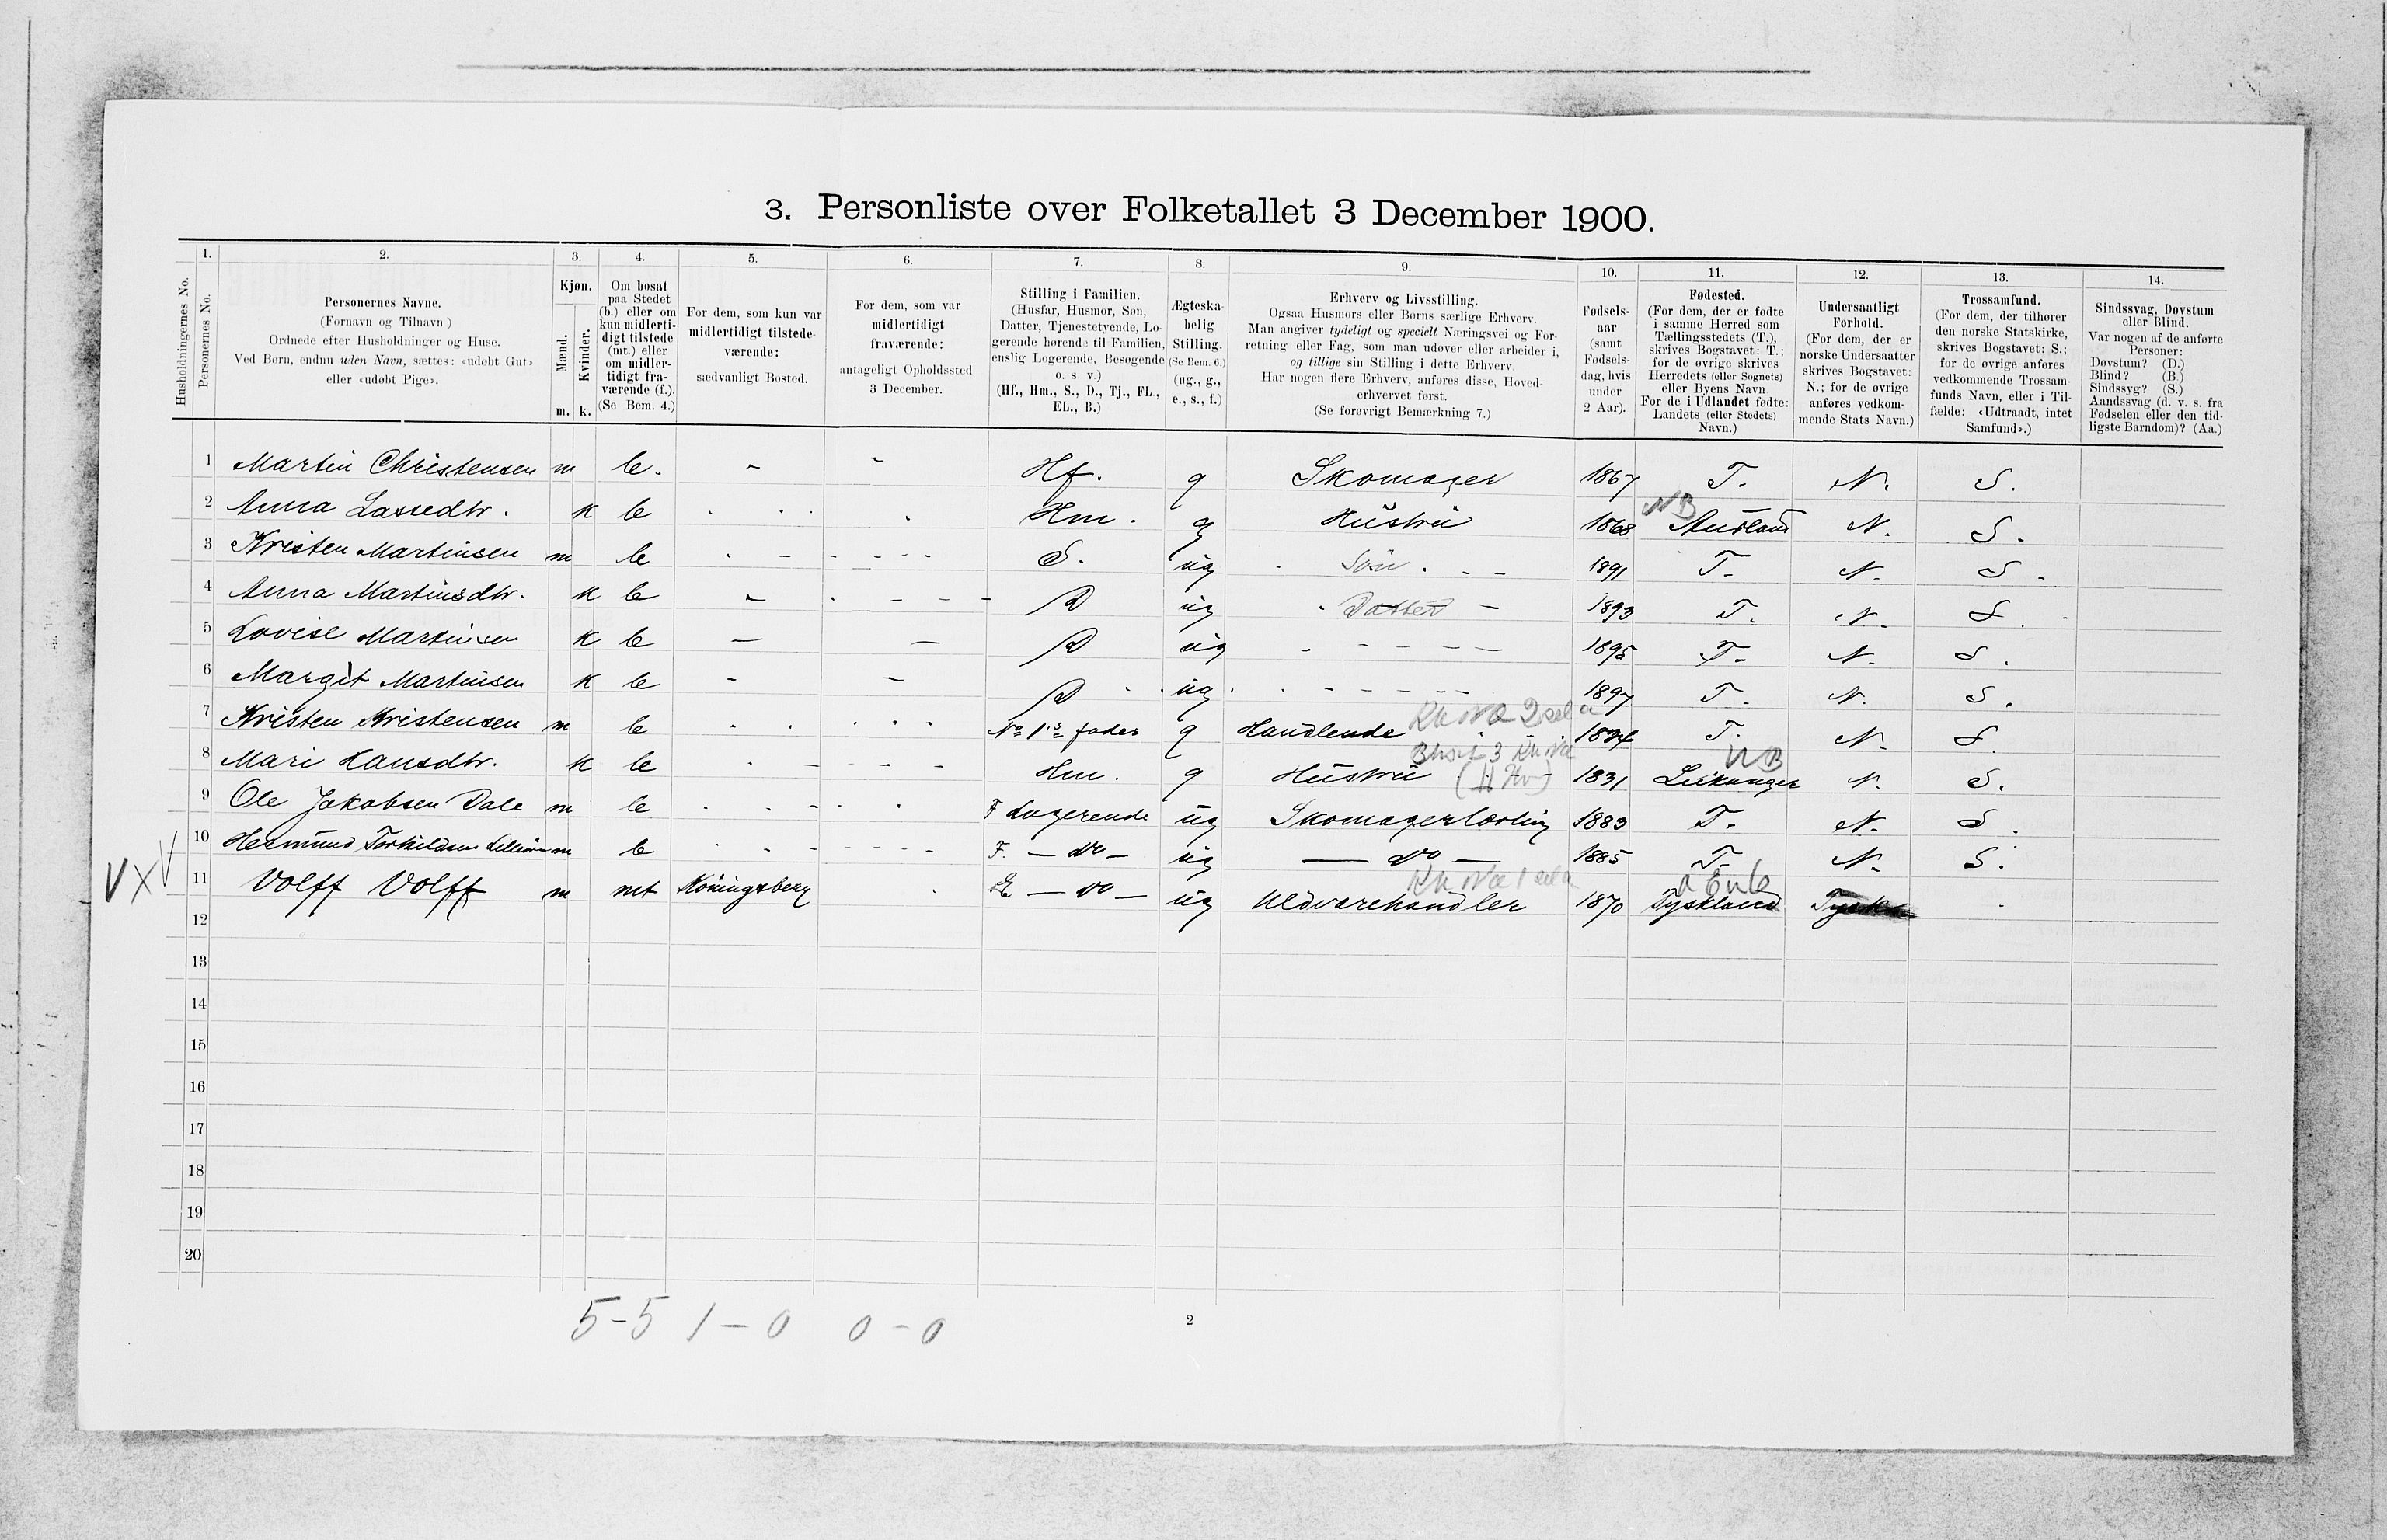 3. Personliste over Folketallet 3 December 1900.
Husholdningernes No.
1. Personernes No.
2. Personernes Navne.
(Fornavn og Tilnavn)
Ordnede efter Husholdninger og Huse.
Ved Børn, endnu uden Navn, sættes: «udøbt Gut»
eller «udøbt Pige».
3. Kjøn.
Mænd. m.
Kvinder. k.
4. Om bosat
paa Stedet
(b.) eller om
kun midlerti-
digt tilstede
(mt.) eller
om midler-
tidigt fra-
værende (f.).
(Se Bem. 4.)
5. For dem, som kun var
midlertidigt tilstede-
værende:
sædvanligt Bosted.
6. For dem, som var
midlertidigt
fraværende:
antageligt Opholdssted
3 December.
7. Stilling i Familien.
(Husfar, Husmor, Søn,
Datter, Tjenestetyende, Lo-
gerende hørende til Familien,
enslig Logerende, Besøgende
o. s. v.)
(Hf., Hm., S., D., Tj., FL.,
EL., B.)
8. Ægteska-
belig
Stilling.
(Se Bem. 6.)
(ug., g.,
e., s., f.)
9. Erhverv og Livsstilling.
Ogsaa Husmors eller Børns særlige Erhverv.
Man angiver tydeligt og specielt Næringsvei og For-
retning eller Fag, som man udøver eller arbeider i,
og tillige sin Stilling i dette Erhverv.
Har nogen flere Erhverv, anføres disse, Hoved-
erhvervet først.
(Se forøvrigt Bemærkning 7.)
10. Fødsels-
aar
(samt
Fødsels-
dag, hvis
under
2 Aar).
11. Fødested.
(For dem, der er fødte
i samme Herred som
Tællingsstedets (T.),
skrives Bogstavet: T.;
for de øvrige skrives
Herredets (eller Sognets)
eller Byens Navn.
For de i Udlandet fødte:
Landets (eller Stedets)
Navn.)
12. Undersaatligt
Forhold.
(For dem, der er
norske Undersaatter
skrives Bogstavet:
N.; for de øvrige
anføres vedkom-
mende Stats Navn.)
13. Trossamfund.
(For dem, der tilhører
den norske Statskirke,
skrives Bogstavet: S.;
for de øvrige anføres
vedkommende Trossam-
funds Navn, eller i Til-
fælde: «Udtraadt, intet
Samfund».)
14. Sindssvag, Døvstum
eller Blind.
Var nogen af de anførte
Personer:
Døvstum? (D.)
Blind? (B.)
Sindssyg? (S.)
Aandssvag (d. v. s. fra
Fødselen eller den tid-
ligste Barndom)? (Aa.)
1 Martin Christensen m b. - - Hf. g Skomager 1867 T. N. S.
NB
2 Anna Lassedtr. k b Hm. g Hustru 1868 Aurland N. S.
3 Kristen Martinsen m b S. ug Søn 1891 T. N. S.
4 Anna Martinsdtr. k b D ug Datter 1893 T. N. S.
5 Lovise Martinsen k b D ug 1895 T. N. S.
6 Margit Martinsen k b D ug 1897 T. N. S.
7 Kristen Kristensen m b No 1's fader g Handlende 1834 T. N. S.
NB
8 Mari Hansdtr. k b Hm. g Hustru 1831 Leikanger N. S.
9 Ole Jakobsen Dale m b F Logerende ug Skomagerlærling 1883 T. N. S.
10 Hermund Torkildsen m b F. - do - ug - do - 1885 T. N. S.
V X V
11 Volff Volff m mt Köningsberg E - do - ug Uldvarehandler 1870 Tyskland Tysk
12
13
14
15
16
17
18
19
20
5-5 1-0 0-0
2